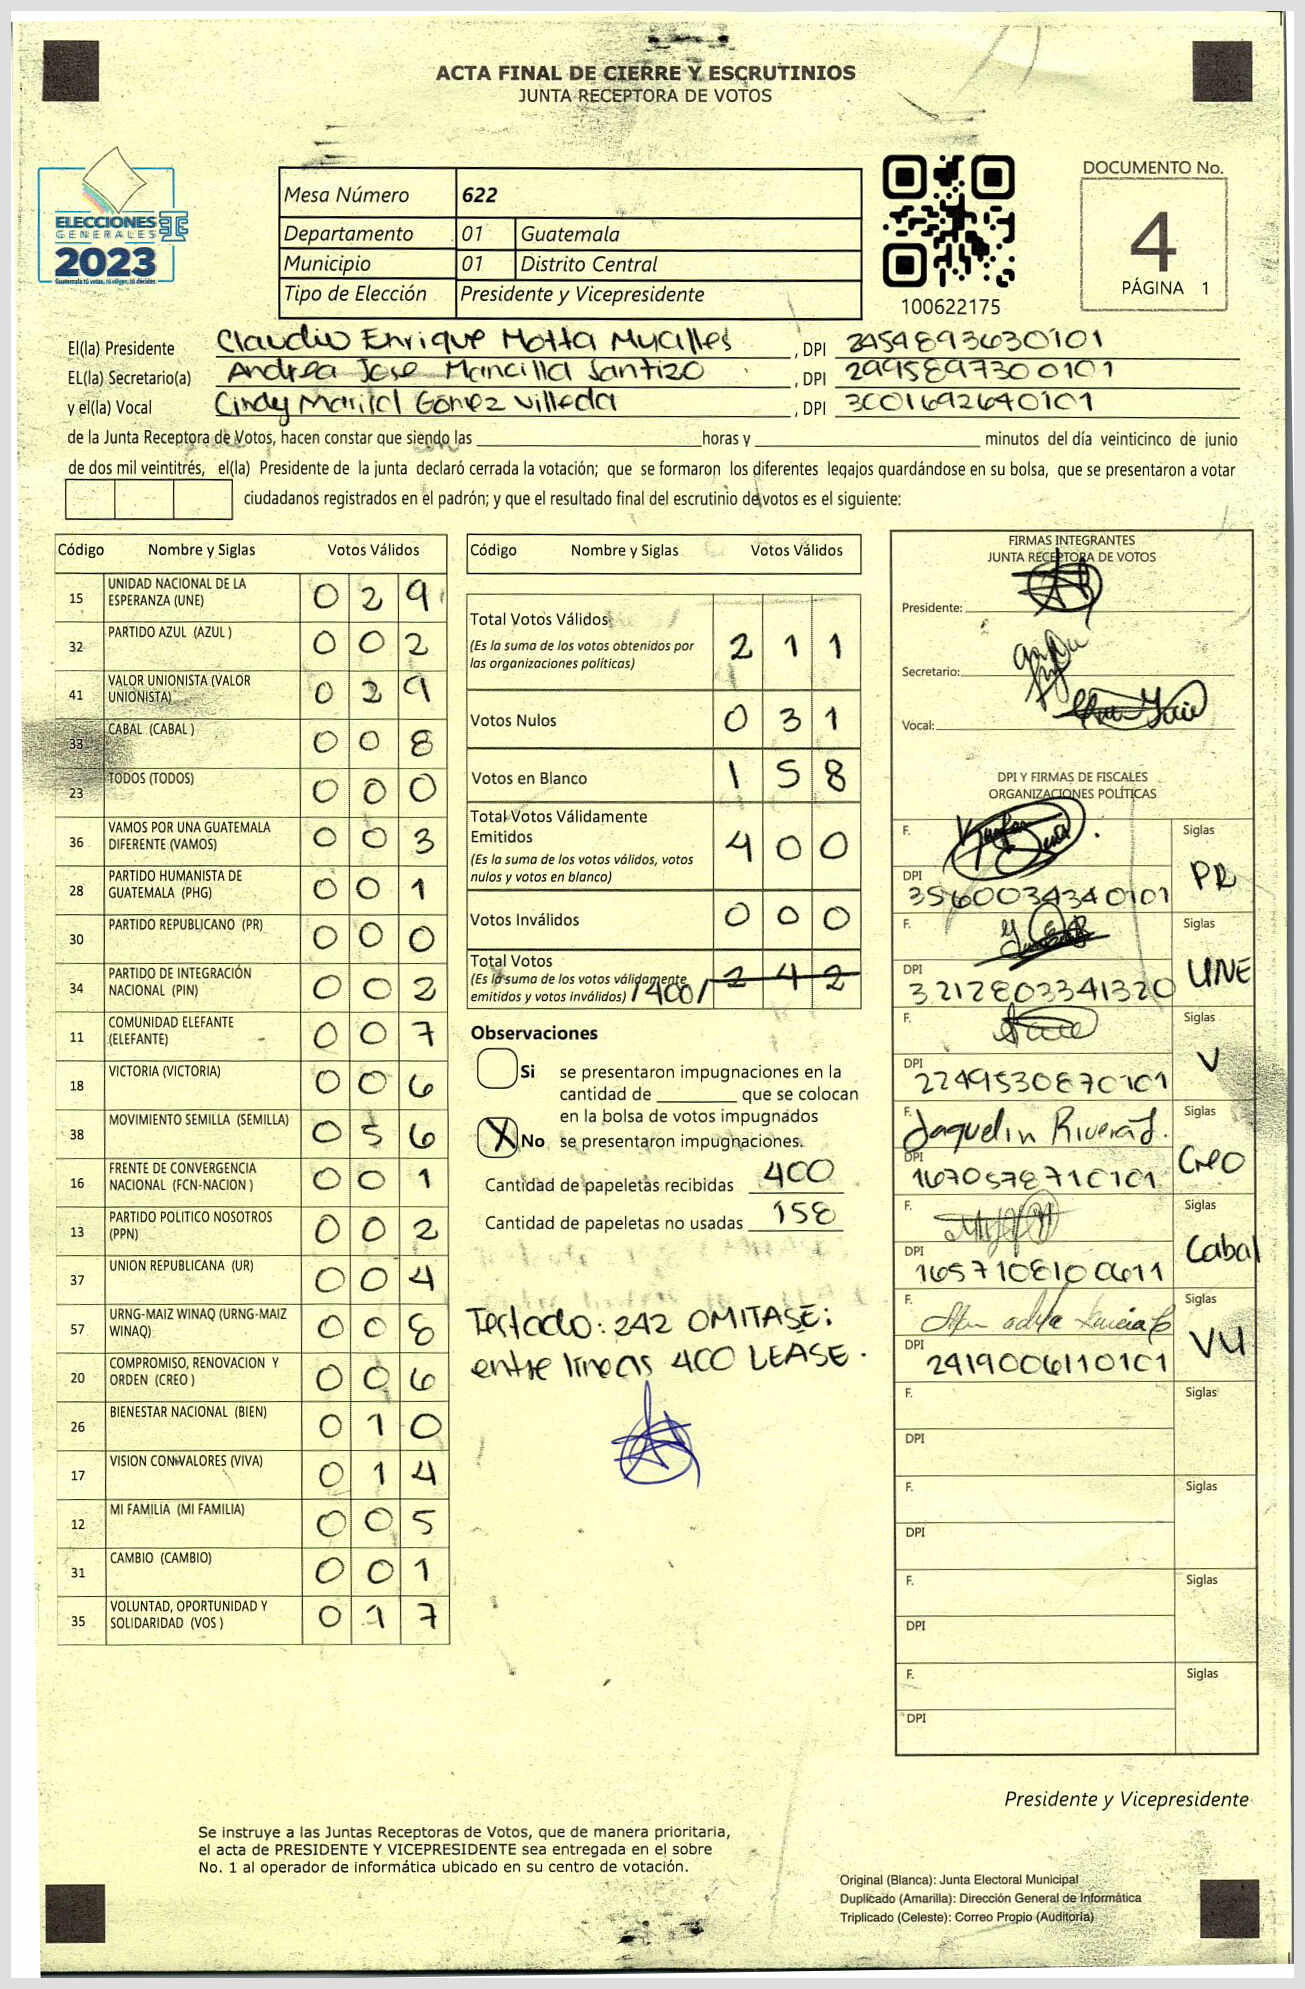 ACTA FINAL DE CIERRE Y ESCRUTINIOS
JUNTA RECEPTORA DE VOTOS
ELECCIONES
GENERALES
2023
Guatemala tú votas, tú eliges, tú decides
Mesa Número 622
Departamento 01 Guatemala
Municipio 01 Distrito Central
Tipo de Elección Presidente y Vicepresidente
100622175
DOCUMENTO No.
4
PÁGINA 1
El(la) Presidente Claudio Enrique Motta , DPI
EL(la) Secretario(a) Andrea Jose Mancilla Santizo , DPI 2995897300101
y el(la) Vocal Cindy Gomez Villeda , DPI 3001692640101
de la Junta Receptora de Votos, hacen constar que siendo las horas y minutos del día veinticinco de junio
de dos mil veintitrés, el(la) Presidente de la junta declaró cerrada la votación; que se formaron los diferentes legajos guardándose en su bolsa, que se presentaron a votar
ciudadanos registrados en el padrón; y que el resultado final del escrutinio de votos es el siguiente:
Código Nombre y Siglas Votos Válidos
15 UNIDAD NACIONAL DE LA ESPERANZA (UNE) 0 2 9
32 PARTIDO AZUL (AZUL ) 0 0 2
41 VALOR UNIONISTA (VALOR UNIONISTA) 0 2 9
33 CABAL (CABAL ) 0 0 8
23 TODOS (TODOS) 0 0 0
36 VAMOS POR UNA GUATEMALA DIFERENTE (VAMOS) 0 0 3
28 PARTIDO HUMANISTA DE GUATEMALA (PHG) 0 0 1
30 PARTIDO REPUBLICANO (PR) 0 0 0
34 PARTIDO DE INTEGRACIÓN NACIONAL (PIN) 0 0 2
11 COMUNIDAD ELEFANTE (ELEFANTE) 0 0 7
18 VICTORIA (VICTORIA) 0 0 6
38 MOVIMIENTO SEMILLA (SEMILLA) 0 5 6
16 FRENTE DE CONVERGENCIA NACIONAL (FCN-NACION ) 0 0 1
13 PARTIDO POLITICO NOSOTROS (PPN) 0 0 2
37 UNION REPUBLICANA (UR) 0 0 4
57 URNG-MAIZ WINAQ (URNG-MAIZ WINAQ) 0 0 8
20 COMPROMISO, RENOVACION Y ORDEN (CREO ) 0 0 6
26 BIENESTAR NACIONAL (BIEN) 0 1 0
17 VISION CON VALORES (VIVA) 0 1 4
12 MI FAMILIA (MI FAMILIA) 0 0 5
31 CAMBIO (CAMBIO) 0 0 1
35 VOLUNTAD, OPORTUNIDAD Y SOLIDARIDAD (VOS ) 0 1 7
Código Nombre y Siglas Votos Válidos
Total Votos Válidos 2 1 1
(Es la suma de los votos obtenidos por
las organizaciones políticas)
Votos Nulos 0 3 1
Votos en Blanco 1 5 8
Total Votos Válidamente
Emitidos 4 0 0
(Es la suma de los votos válidos, votos
nulos y votos en blanco)
Votos Inválidos 0 0 0
Total Votos 2 4 2
(Es la suma de los votos válidamente
emitidos y votos inválidos) /400/
Observaciones
Si se presentaron impugnaciones en la
cantidad de que se colocan
en la bolsa de votos impugnados
X No se presentaron impugnaciones.
Cantidad de papeletas recibidas 400
Cantidad de papeletas no usadas 158
Testado: 242 OMITASE:
entre lineas 400 LEASE.
FIRMAS INTEGRANTES
JUNTA RECEPTORA DE VOTOS
Presidente:
Secretario:
Vocal:
DPI Y FIRMAS DE FISCALES
ORGANIZACIONES POLÍTICAS
F. Siglas PR
DPI 3560034340101
F. Siglas UNE
DPI 3212803341320
F. Siglas V
DPI 2249530870101
F. Jaquelin Rivera Siglas Creo
DPI 1670578710101
F. Siglas Cabal
DPI 1657108100611
F. Siglas VU
DPI 2419006110101
F. Siglas
DPI
F. Siglas
DPI
F. Siglas
DPI
F. Siglas
DPI
Presidente y Vicepresidente
Se instruye a las Juntas Receptoras de Votos, que de manera prioritaria,
el acta de PRESIDENTE Y VICEPRESIDENTE sea entregada en el sobre
No. 1 al operador de informática ubicado en su centro de votación.
Original (Blanca): Junta Electoral Municipal
Duplicado (Amarilla): Dirección General de Informática
Triplicado (Celeste): Correo Propio (Auditoría)